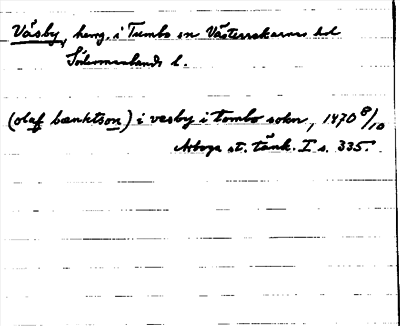 Väsby, hemg. i Tumbo sn Västerrekarne hd
Södermanlands l.
(olaf bænktson) i vesby i tombo sokn, 1470 8/10
Arboga st. tänk. I s. 335.